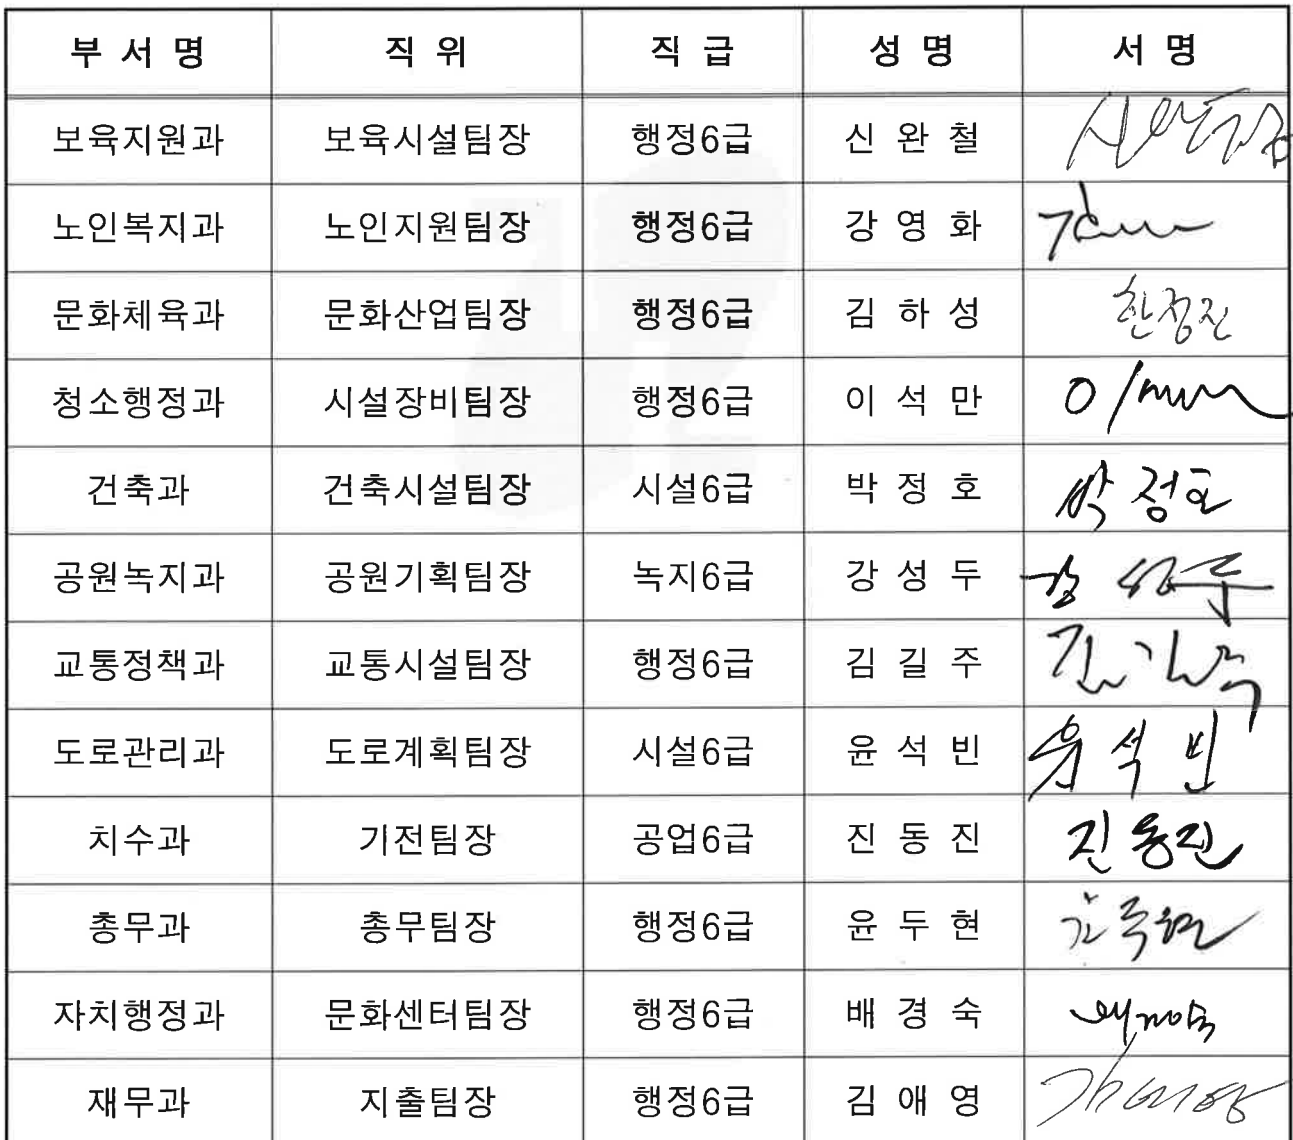 부 서 명 직 위 직 급 성 명 서 명
보육지원과 보육시설팀장 행정6급 신 완 철
노인복지과 노인지원팀장 행정6급 강 영 화
문화체육과 문화산업팀장 행정6급 김 하 성 한정진
청소행정과 시설장비팀장 행정6급 이 석 만
건축과 건축시설팀장 시설6급 박 정 호 박정호
공원녹지과 공원기획팀장 녹지6급 강 성 두 강 성두
교통정책과 교통시설팀장 행정6급 김 길 주
도로관리과 도로계획팀장 시설6급 윤 석 빈 윤석빈
치수과 기전팀장 공업6급 진 동 진 진동진
총무과 총무팀장 행정6급 윤 두 현
자치행정과 문화센터팀장 행정6급 배 경 숙
재무과 지출팀장 행정6급 김 애 영